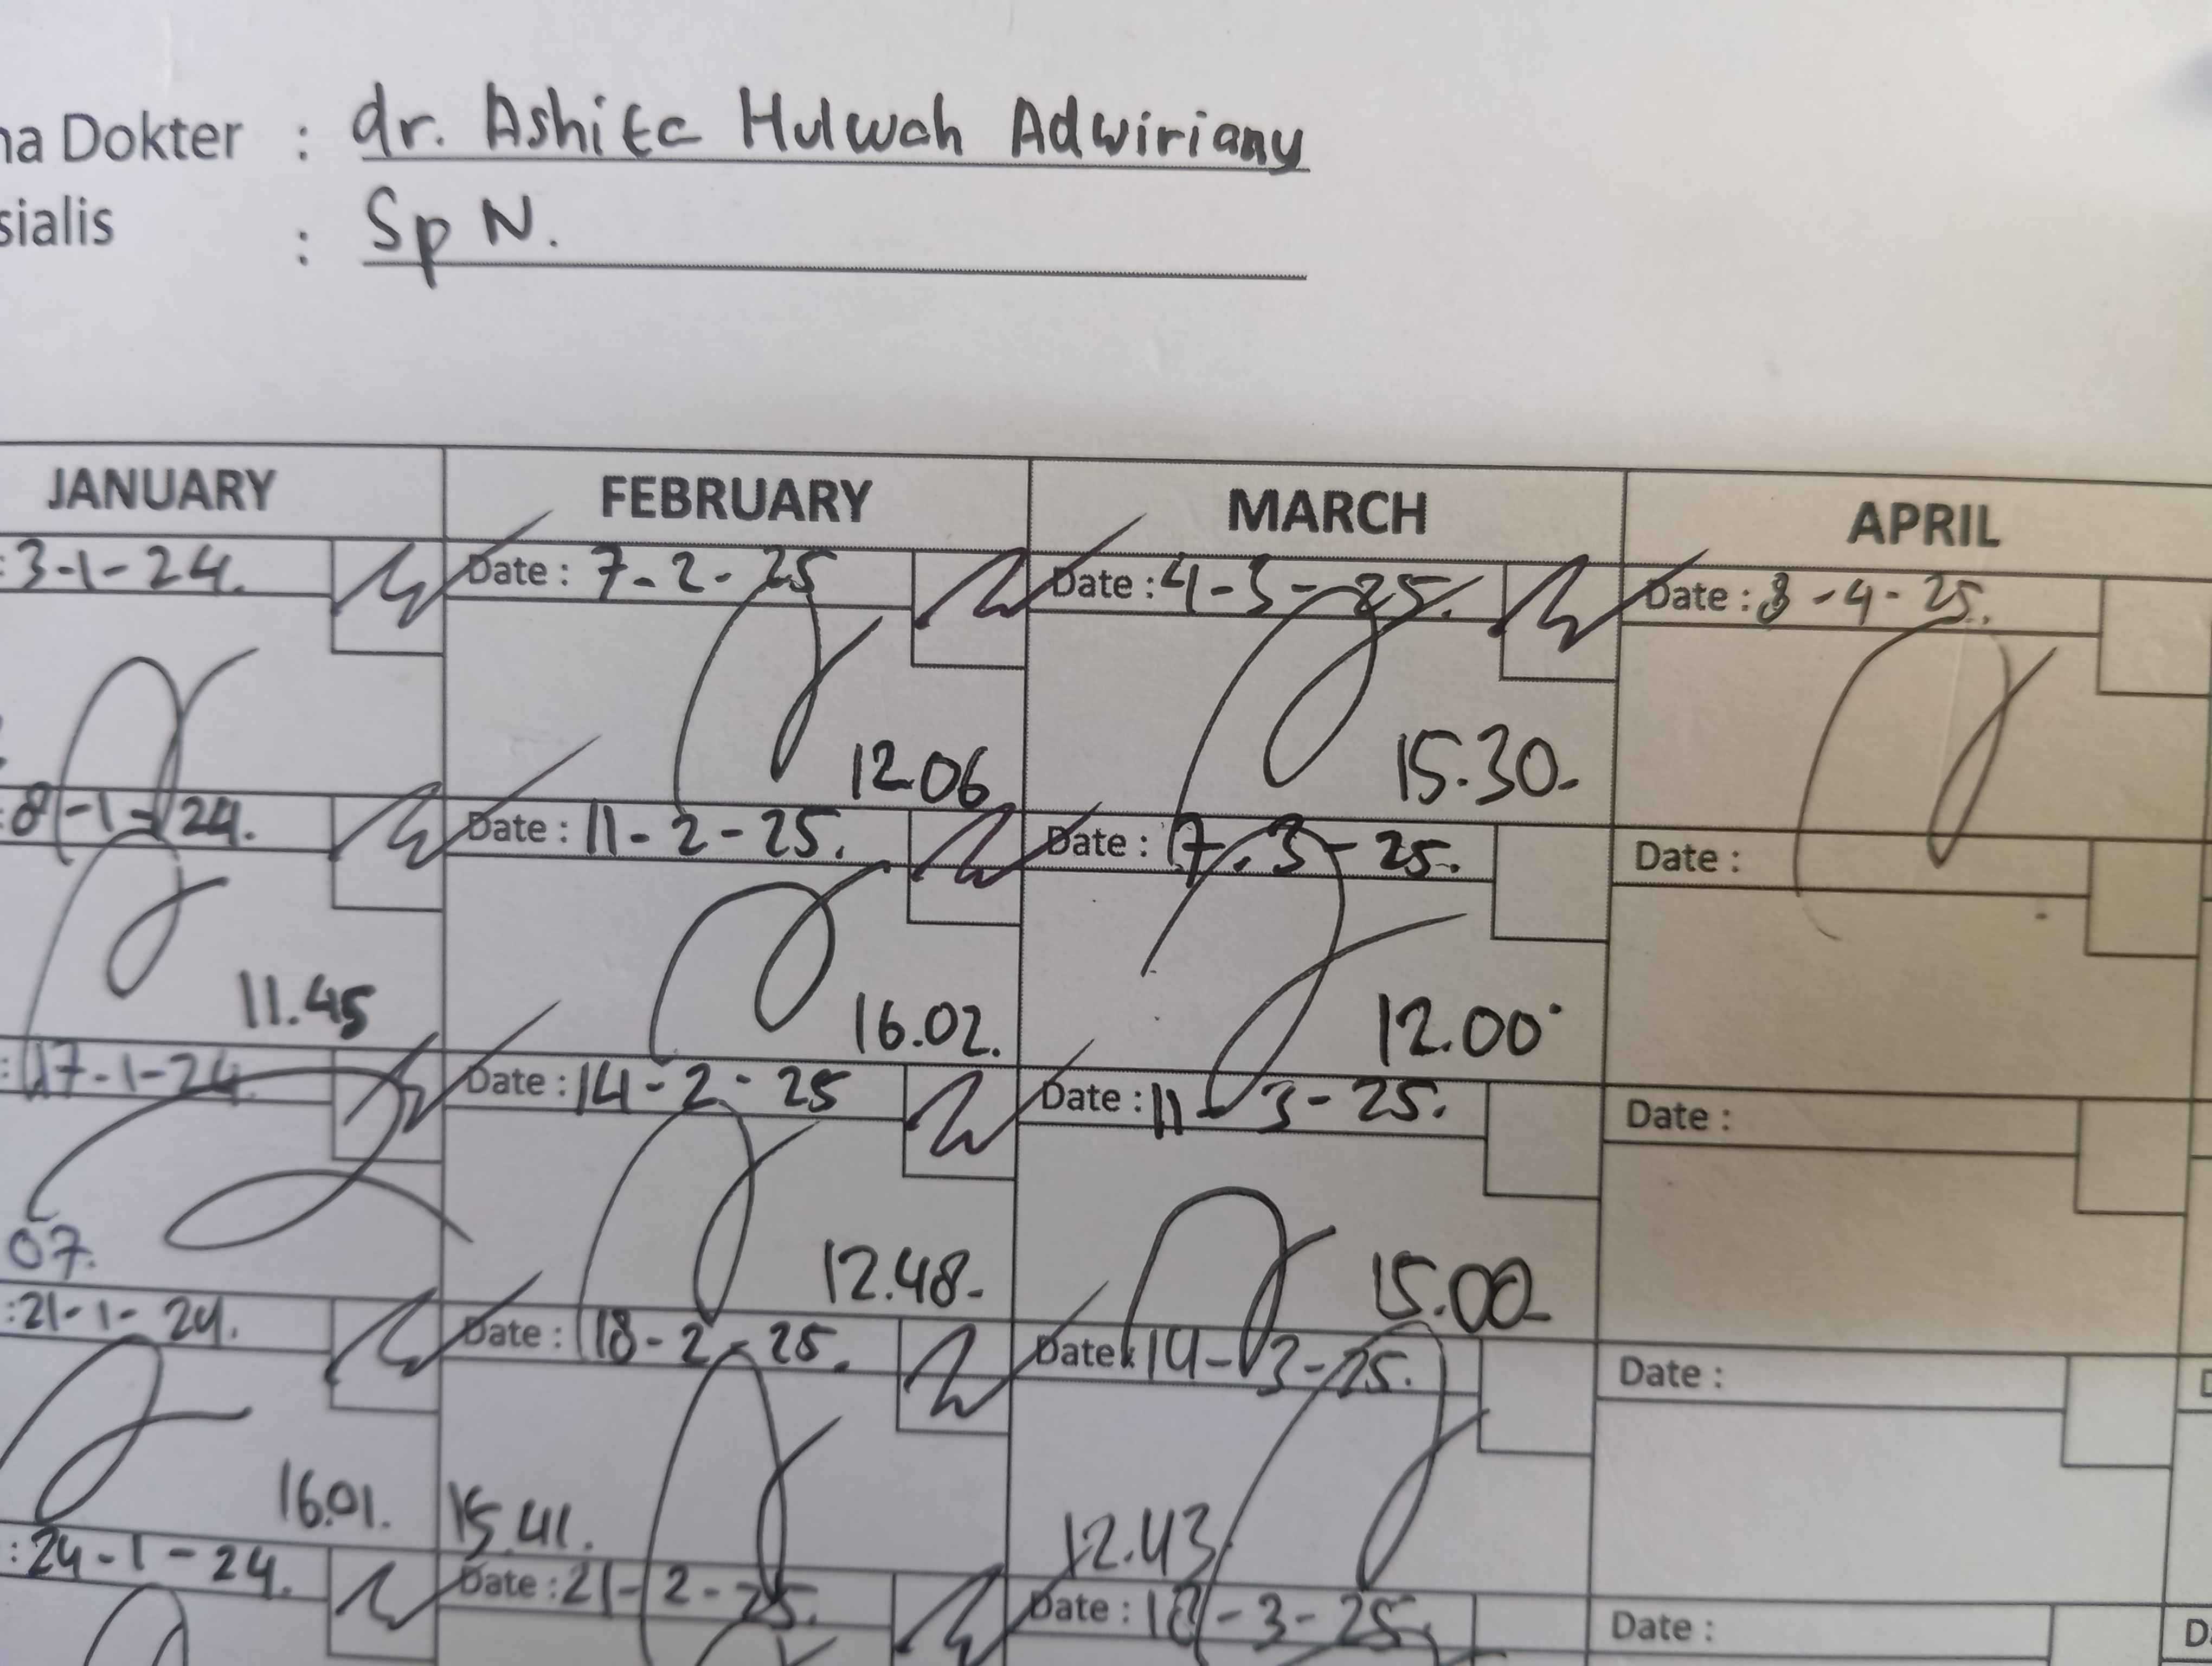 na Dokter : dr. Ashita Hulwah Adwiriany
sialis : Sp N.
JANUARY FEBRUARY MARCH APRIL
: 3-1-24. Date : 7-2-25 Date : 4-3-25. Date : 8-4-25.
12.06 15.30-
: 8-1-24. Date : 11-2-25. Date : 7-3-25. Date :
11.45 16.02. 12.00
: 17-1-24. Date : 14-2-25 Date : 11-3-25. Date :
07. 12.48- 15.00
: 21-1-24. Date : 18-2-25. Date : 14-3-25. Date :
16.01. 15.41. 12.43
: 24-1-24. Date : 21-2-25. Date : 18-3-25. Date :